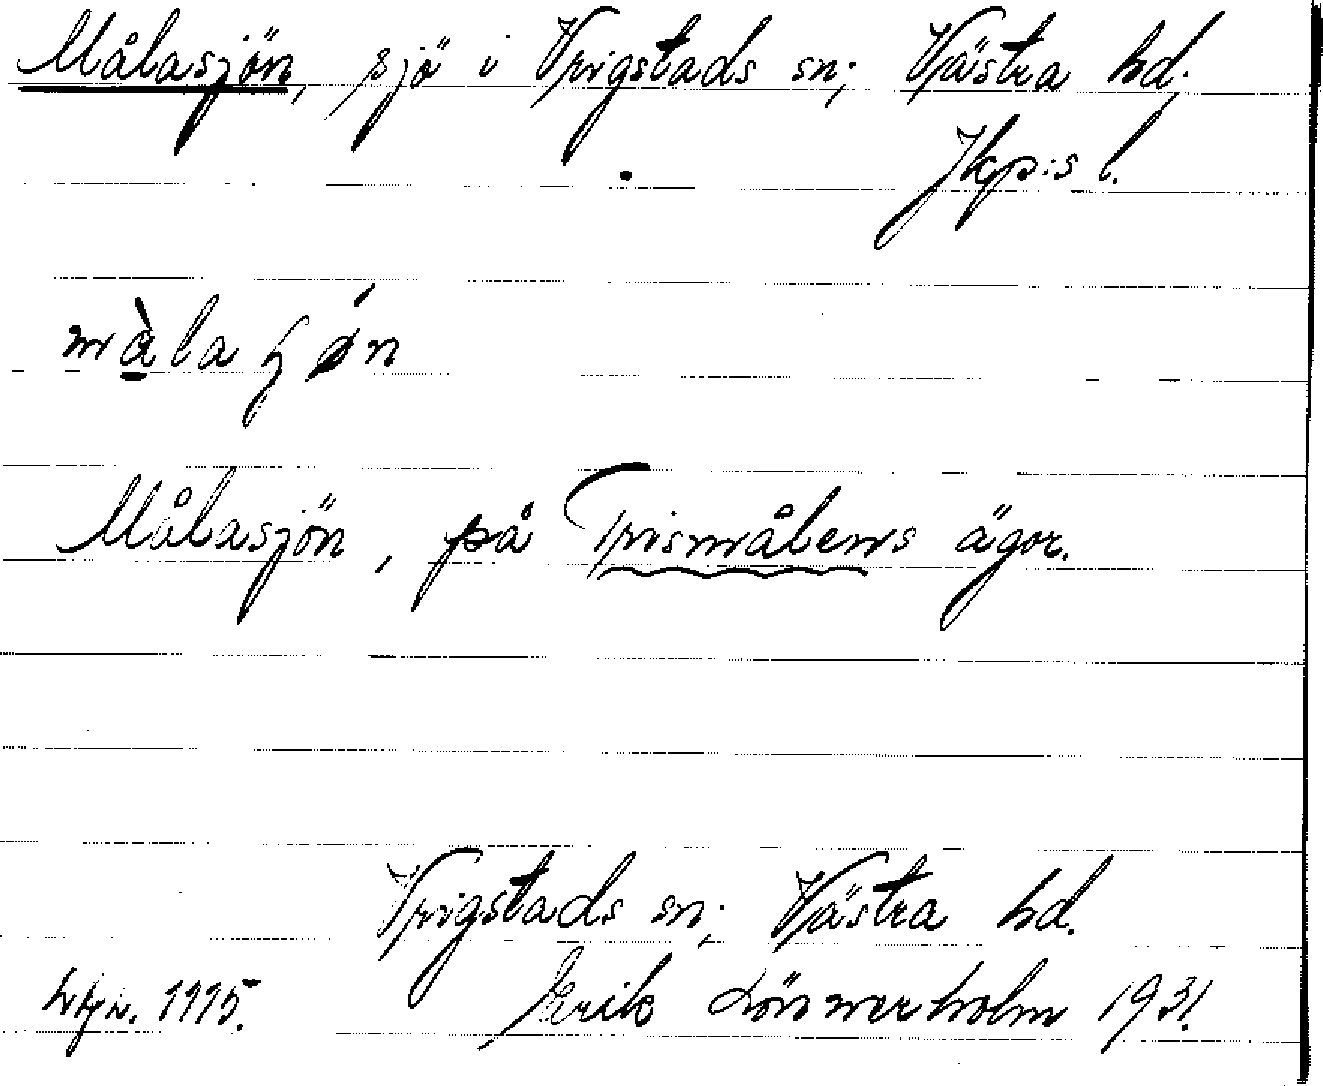 Målasjön, sjö i Vrigstads sn; Västra hd.
Jkp:s l.
Målasjön, på Trismålens ägor.
Vrigstads sn; Västra hd.
1115. Erik Lönnerholm 1931.